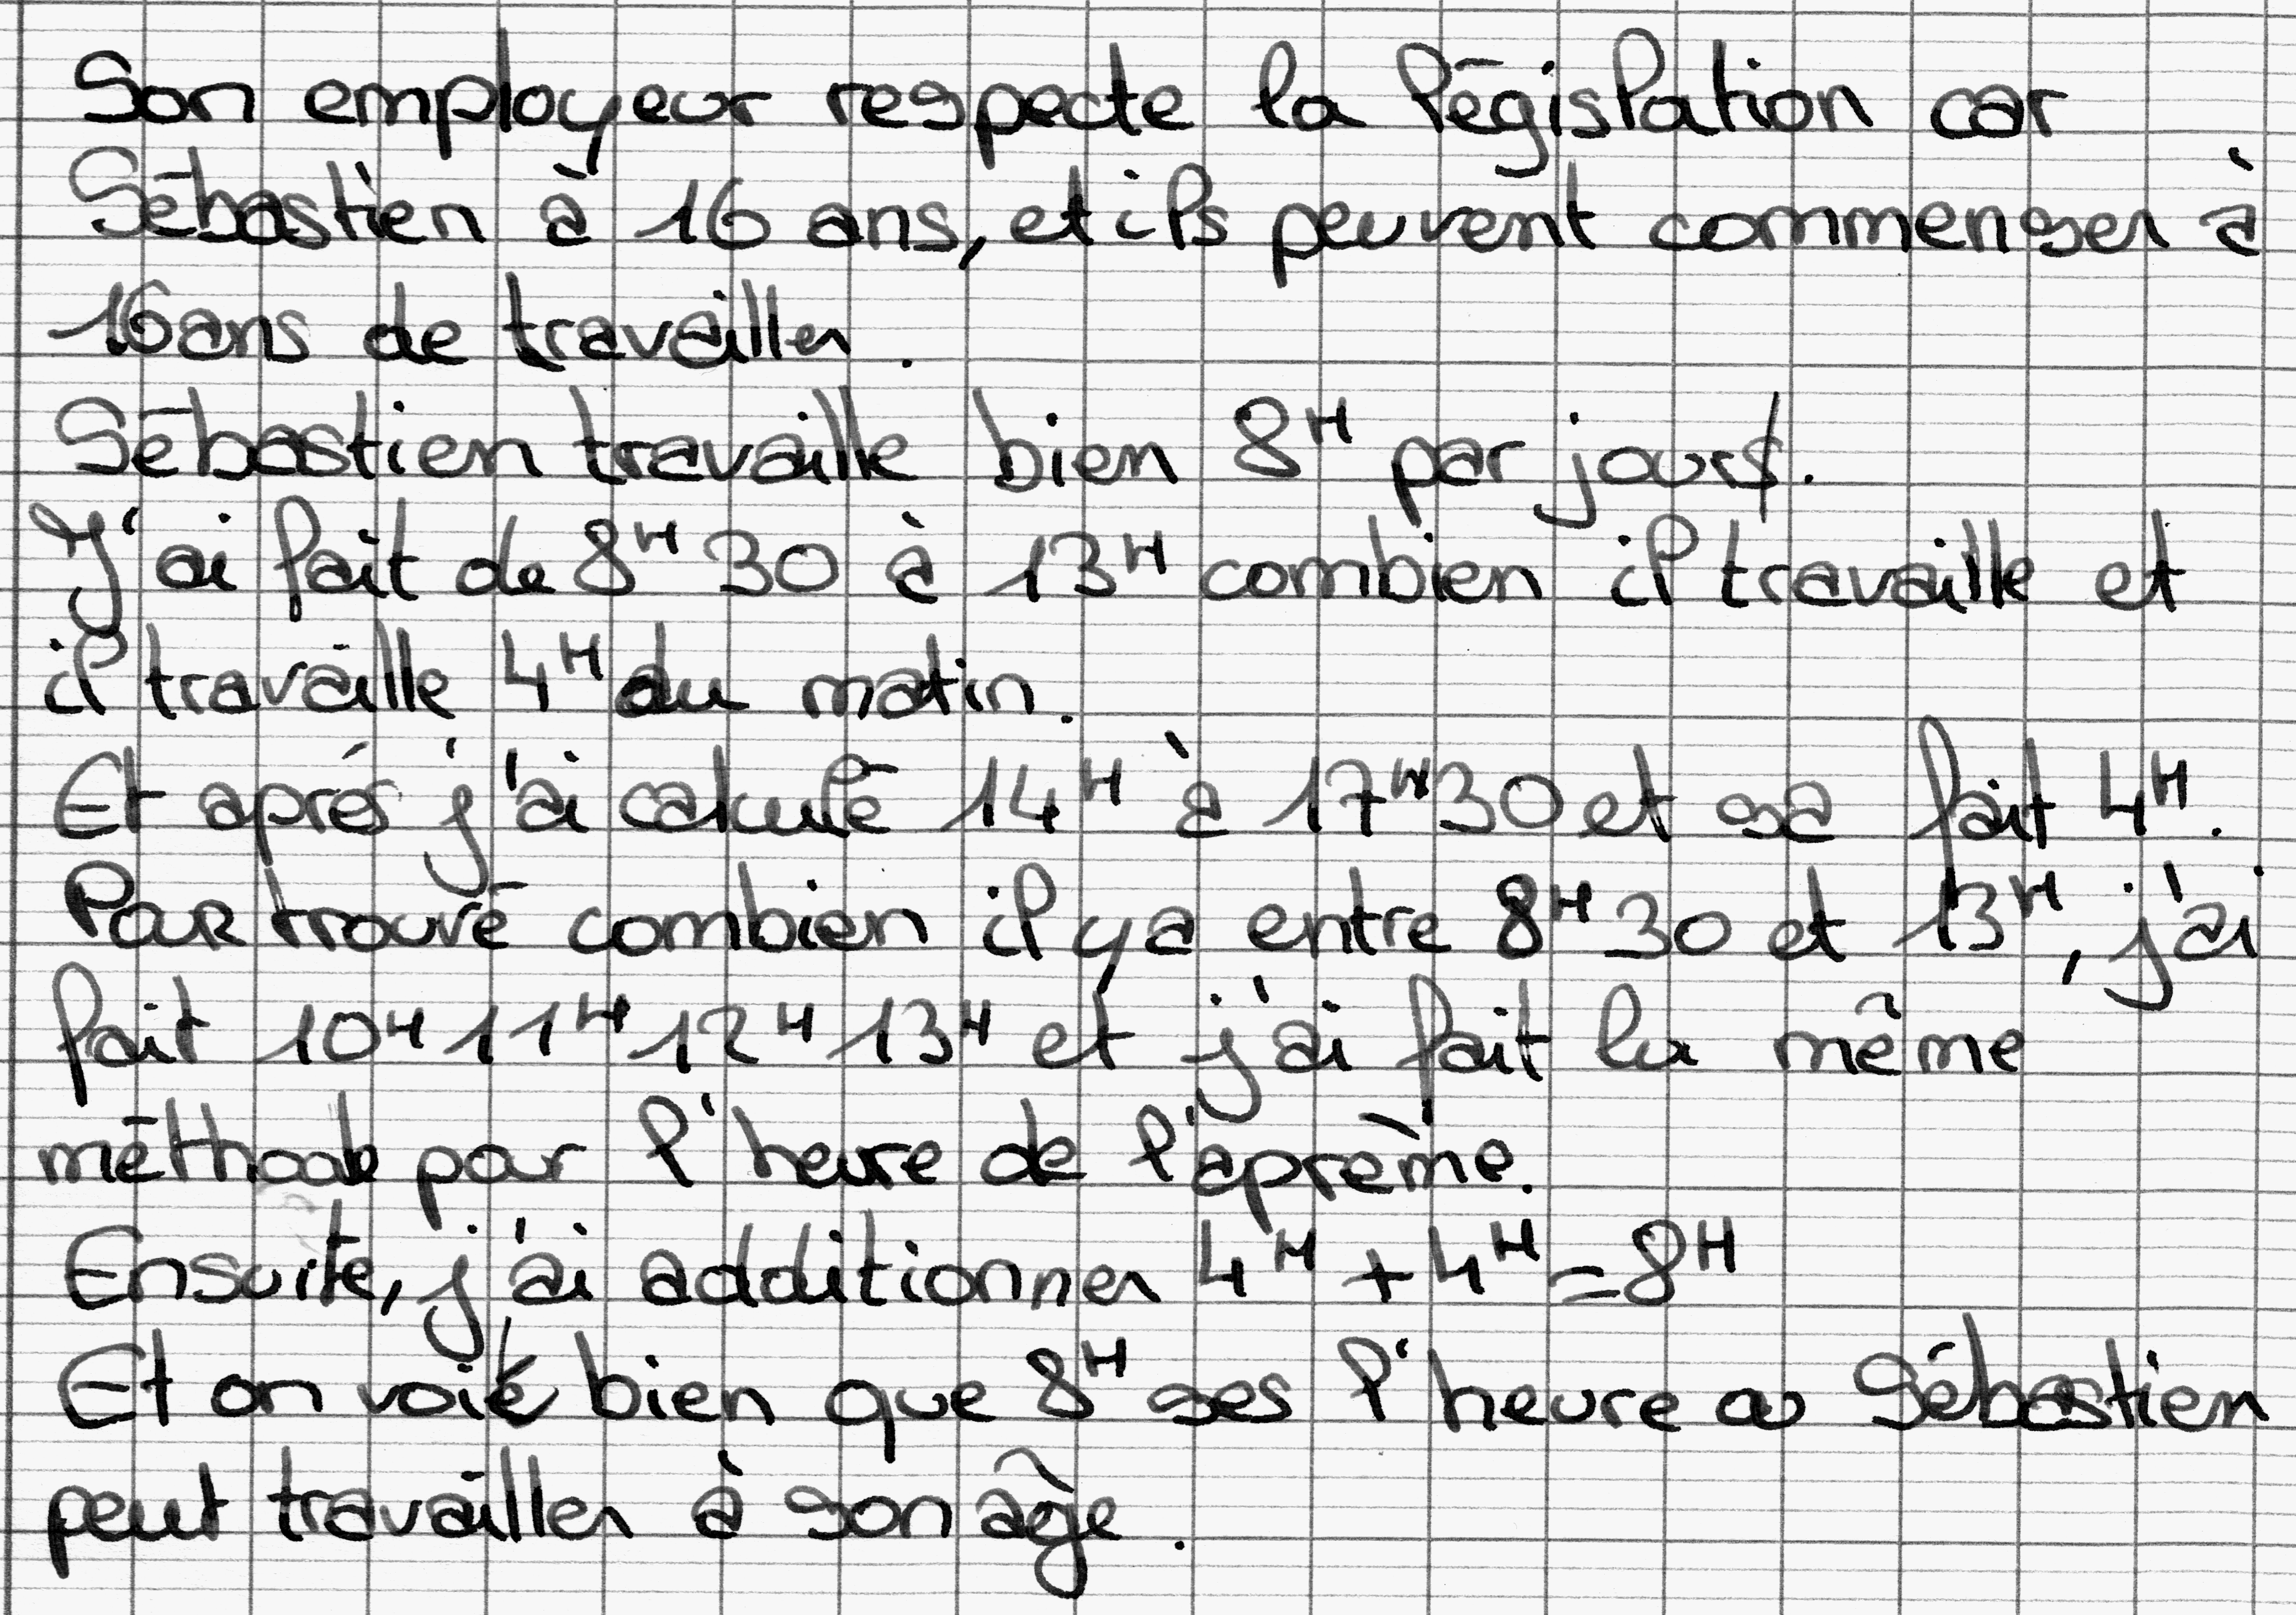 Son employeur respecte la législation car
Sébastien à 16 ans, et ils peuvent commenser à
16ans de travailler.
Sébastien travaille bien 8H par jour.
J'ai fait de 8H30 à 13H combien il travaille et
il travaille 4H du matin.
Et aprés j'ai calculé 14H à 17H30 et sa fait 4H.
Pour trouvé combien il y a entre 8H30 et 13H, j'ai
fait 10H 11H 12H 13H et j'ai fait la même
méthode pour l'heure de l'aprème.
Ensuite, j'ai additionner 4H + 4H = 8H
Et on voit bien que 8H ses l'heure a Sébastien
peut travailler à son age.